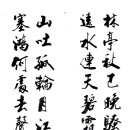 林亭秋已晚騷
遠水連天碧霜
山吐孤輪月江
塞鴻何處去聲